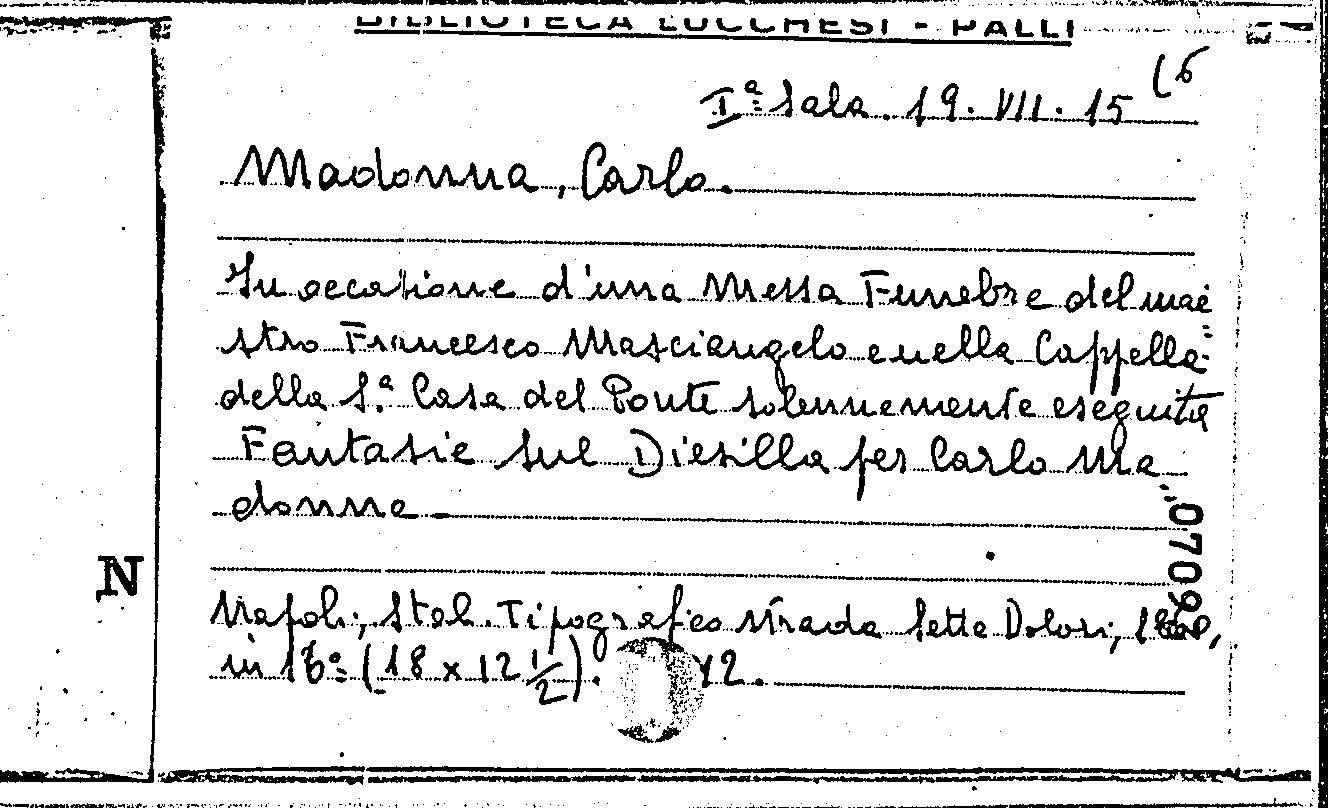 BIBLIOTECA LUCCHESI - PALLI
Iª Sala. 19. VII. 15 (6
Madonna, Carlo.
In occasione d'una Messa Funebre del mae
stro Francesco Masciangelo e nella Cappella
della S.ª Casa del Ponte solennemente eseguita
Fantasie sul Diesilla per Carlo Ma
donna
N
Napoli, Stab. Tipografico strada Sette Dolori,
in 16º (18 x 12 1/2). 12.